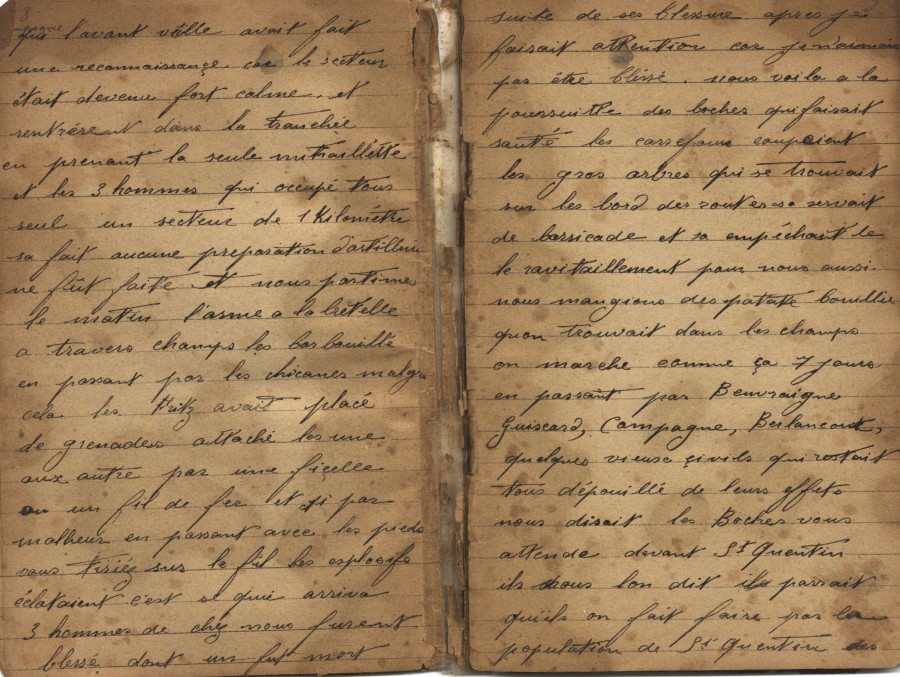 3
que l'avant veille avait fait
une reconnaissance car le secteur
était devenu fort calme, et
rentrérent dans la tranchée
en prenant la seule mitraillette
et les 3 hommes qui occupé tous
seul un secteur de 1 Kilométre
sa fait aucune preparation d'artillerie
ne fut faite et nous partimes
le matin l'arme a la bretelle
a travers champs les barbouillé
en passant par les chicanes malgré
cela les Fritz avait placé
de grenades attaché les une
aux autre par une ficelle
ou un fil de fer et si par
malheur en passant avec les pieds
vous tiriéz sur le fil les explosifs
éclataient c'est ce qui arriva
3 hommes de chez nous furent
blessé dont un fut mort
suite de ses blessure apres je
faisait attention car je n'aimais
pas être bléssé. nous voila a la
poursuitte des boches qui faisait
sauté les carrefour coupaient
les gros arbres qui se trouvait
sur les bord des routes sa servait
de barricade et sa empéchant le
le ravitaillement pour nous aussi.
nous mangions des patate bouillie
quon trouvait dans les champs
on marche comme ça 7 jours
en passant par Beuvraigne
Guiscard, Campagne, Berlancourt,
quelques vieux çivils qui restait
tous dépouillé de leurs effets
nous disait les Boches vous
attende devant St Quentin
ils nous lon dit ils parrait
qu'ils on fait faire par la
population de St Quentin des